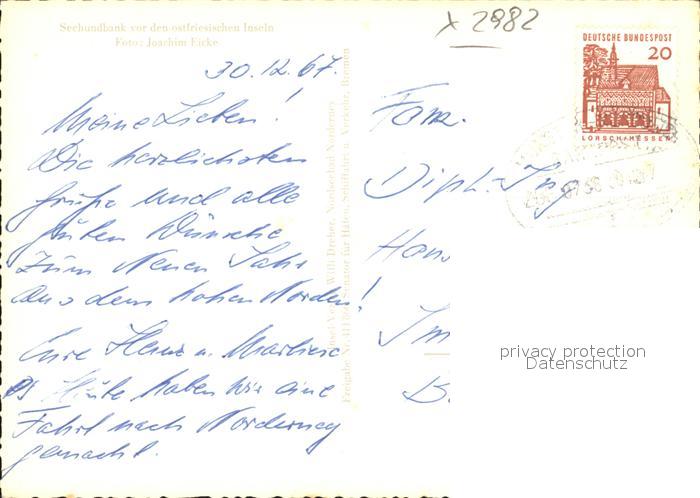 Seehundbank vor den ostfriesischen Inseln
Foto: Joachim Eicke
x 2982
30.12.67.
Meine Lieben!
Die herzlichsten
Grüße und alle
guten Wünsche
zum Neuen Jahr
aus dem hohen Norden!
Eure Heinz u. Marliese
PS Heute haben wir eine
Fahrt nach Norderney
gemacht.
Insel-Verlag Willi Dreher, Nordseebad Norderney
Freigabe Nr. Senator für Häfen, Schiffahrt u. Verkehr, Bremen
Fam.
Dipl. Ing
Han
Im
B.
DEUTSCHE BUNDESPOST
20
LORSCH/HESSEN
privacy protection
Datenschutz